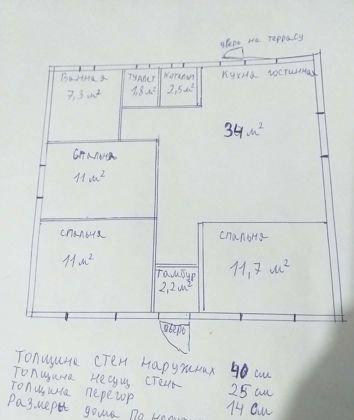 дверь на террасу
Ванная
7,3 м²
туалет
1,8 м²
Котельн
2,5 м²
Кухня гостинная
34 м²
Спальня
11 м²
спальня
11 м²
тамбур
2,2 м²
спальня
11,7 м²
дверь
Толщина стен наружных 40 см
Толщина несущ стены 25 см
Толщина перегор 14 см
Размеры дома По